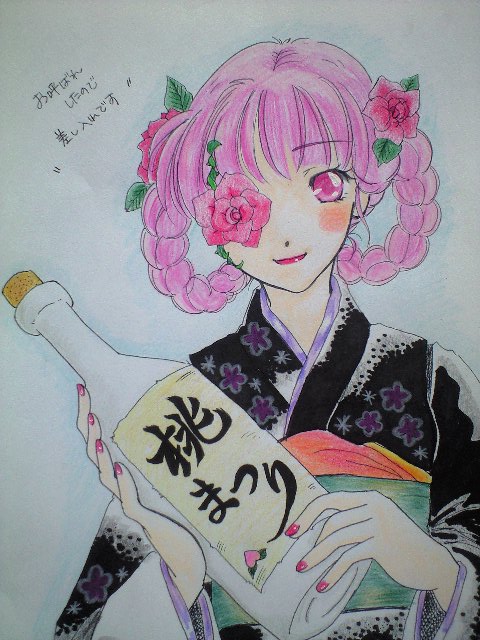 お呼ばれ
したので
差し入れです"
"
桃
まつり